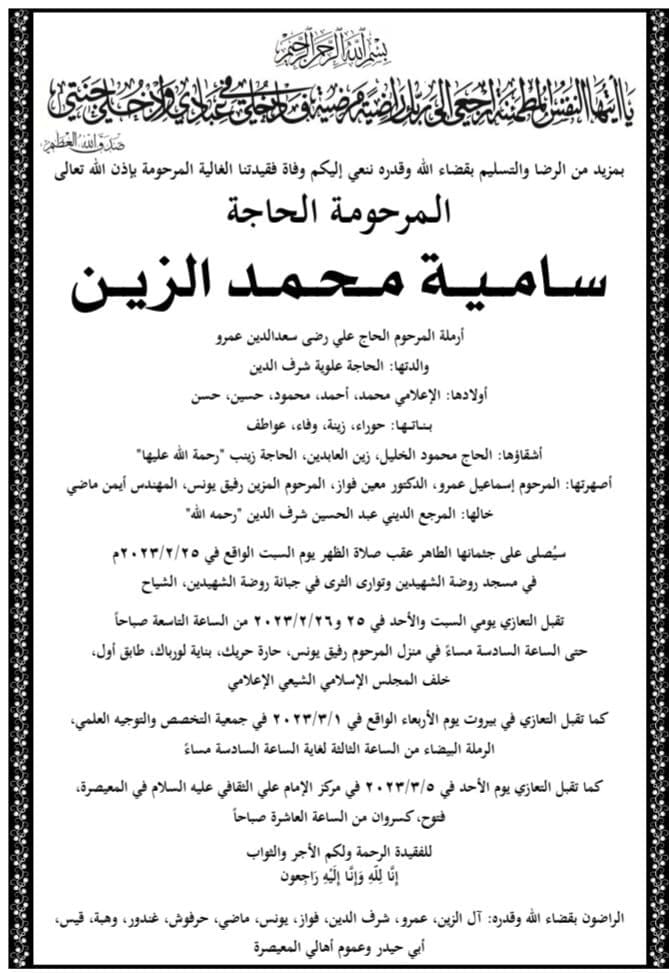 بسم الله الرحمن الرحيم
يا أيتها النفس المطمئنة ارجعي إلى ربك راضية مرضية فادخلي في عبادي وادخلي جنتي
صدق الله العظيم
بمزيد من الرضا والتسليم بقضاء الله وقدره ننعي إليكم وفاة فقيدتنا الغالية المرحومة بإذن الله تعالى
المرحومة الحاجة
سامية محمد الزين
أرملة المرحوم الحاج علي رضى سعدالدين عمرو
والدتها: الحاجة علوية شرف الدين
أولادها: الإعلامي محمد، أحمد، محمود، حسين، حسن
بناتها: حوراء، زينة، وفاء، عواطف
أشقاؤها: الحاج محمود الخليل، زين العابدين، الحاجة زينب "رحمة الله عليها"
أصهرتها: المرحوم إسماعيل عمرو، الدكتور معين فواز، المرحوم المزين رفيق يونس، المهندس أيمن ماضي
خالها: المرجع الديني عبد الحسين شرف الدين "رحمه الله"
سيُصلى على جثمانها الطاهر عقب صلاة الظهر يوم السبت الواقع في ٢٠٢٣/٢/٢٥م
في مسجد روضة الشهيدين وتوارى الثرى في جبانة روضة الشهيدين، الشياح
تقبل التعازي يومي السبت والأحد في ٢٥ و٢٠٢٣/٢/٢٦ من الساعة التاسعة صباحاً
حتى الساعة السادسة مساءً في منزل المرحوم رفيق يونس، حارة حريك، بناية لورباك، طابق أول،
خلف المجلس الإسلامي الشيعي الإعلامي
كما تقبل التعازي في بيروت يوم الأربعاء الواقع في ٢٠٢٣/٣/١ في جمعية التخصص والتوجيه العلمي،
الرملة البيضاء من الساعة الثالثة لغاية الساعة السادسة مساءً
كما تقبل التعازي يوم الأحد في ٢٠٢٣/٣/٥ في مركز الإمام علي الثقافي عليه السلام في المعيصرة،
فتوح، كسروان من الساعة العاشرة صباحاً
للفقيدة الرحمة ولكم الأجر والثواب
إِنَّا لِلَّهِ وَإِنَّا إِلَيْهِ رَاجِعون
الراضون بقضاء الله وقدره: آل الزين، عمرو، شرف الدين، فواز، يونس، ماضي، حرفوش، غندور، وهبة، قيس،
أبي حيدر وعموم أهالي المعيصرة